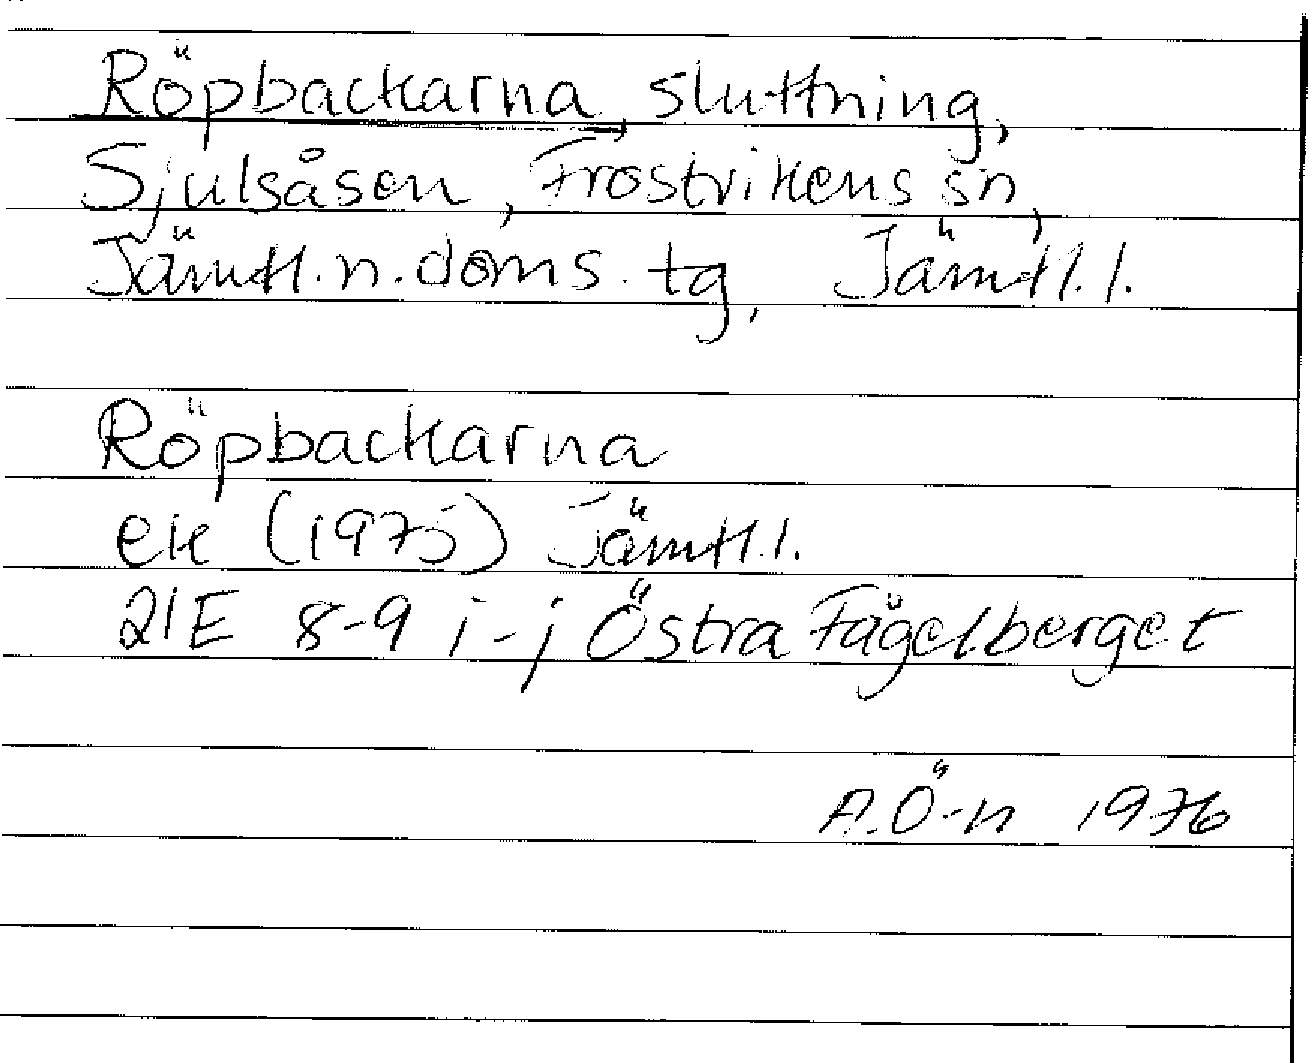 Röpbackarna, sluttning,
Sjulsåsen, Frostvikens sn,
Jämtl.n.doms.tg, Jämtl.l.
Röpbackarna
ek (1975) Jämtl.l.
21E 8-9 i-j Östra Fågelberget
A.Ö-n 1976